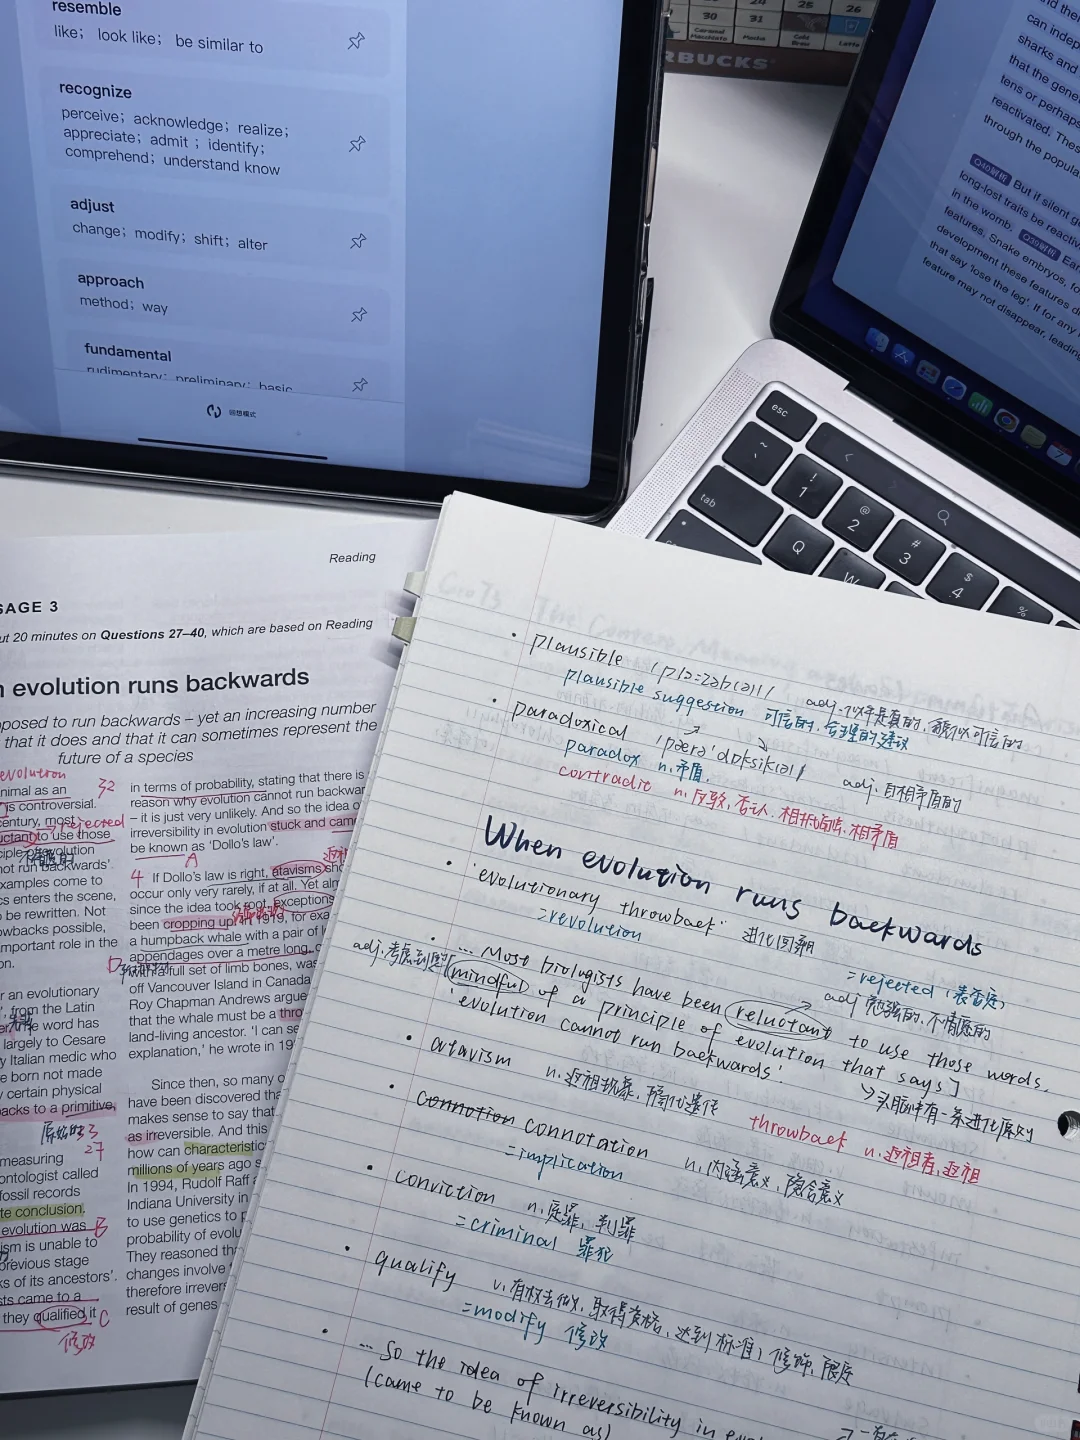 resemble
like; look like; be similar to
recognize
perceive; acknowledge; realize;
appreciate; admit ; identify;
comprehend; understand know
adjust
change; modify; shift; alter
approach
method; way
fundamental
rudimentary; preliminary; basic
回想模式
24 25 26
30 31
Caramel Macchiato Mocha Cold Brew Latte
STARBUCKS
can indep
sharks and
that the gene
tens or perhaps
reactivated. Thes
through the popula
But if silent g
long-lost traits be reactiv
in the womb.
features. Snake embryos, fo
development these features d
that say 'lose the leg'. If for any
feature may not disappear, leading
esc
tab
Q
W
! 1
@ 2
# 3
$ 4
%
Reading
SAGE 3
ut 20 minutes on Questions 27–40, which are based on Reading
n evolution runs backwards
pposed to run backwards – yet an increasing number
that it does and that it can sometimes represent the
future of a species
evolution
nimal as an
is controversial.
century, most
rejected
uctant to use those
ciple of evolution
not run backwards'.
xamples come to
cs enters the scene,
o be rewritten. Not
owbacks possible,
mportant role in the
on.
r an evolutionary
, from the Latin
e word has
largely to Cesare
y Italian medic who
e born not made
y certain physical
acks to a primitive,
原始的
33
27
measuring
ontologist called
fossil records
te conclusion.
evolution was
B
ism is unable to
previous stage
ks of its ancestors'.
sts came to a
they qualified it
C
修改
32
in terms of probability, stating that there is
reason why evolution cannot run backwar
– it is just very unlikely. And so the idea o
irreversibility in evolution stuck and came
be known as 'Dollo's law'.
A
4 If Dollo's law is right, atavisms sho
occur only very rarely, if at all. Yet alm
since the idea took root, exceptions
been cropping up. In 1919, for exa
a humpback whale with a pair of l
appendages over a metre long, c
D
with a full set of limb bones, was
off Vancouver Island in Canada
Roy Chapman Andrews argue
that the whale must be a thro
land-living ancestor. 'I can se
explanation,' he wrote in 19
Since then, so many o
have been discovered tha
makes sense to say that
as irreversible. And this
how can characteristic
millions of years ago s
In 1994, Rudolf Raff a
Indiana University in
to use genetics to p
probability of evolu
They reasoned tha
changes involve
therefore irrevers
result of genes
plausible /'plɔ:zəb(ə)l/ adj.似乎是真的,貌似可信的
plausible suggestion 可信的,合理的建议
paradoxical /ˌpærə'dɒksɪk(ə)l/ adj.自相矛盾的
paradox n.矛盾.
contradict n.反驳,否认.相抵触,相矛盾
When evolution runs backwards
evolutionary throwback: 进化回溯
=revolution
=rejected
adj 勉强的.不情愿的
... Most biologists have been reluctant to use those words.
adj.考虑到是
[mindful of a principle of evolution that says]
'evolution cannot run backwards'.
头脑中有一条进化原则
atavism n.返祖现象,隔代遗传
throwback n.返祖者,返祖
connotation n.内涵意义,隐含意义
=implication
conviction n.定罪,判罪
=criminal 罪犯
qualify v.有权去做,取得资格,达到标准;修饰,限定
=modify 修改
...So the idea of irreversibility in evol
(came to be known as)